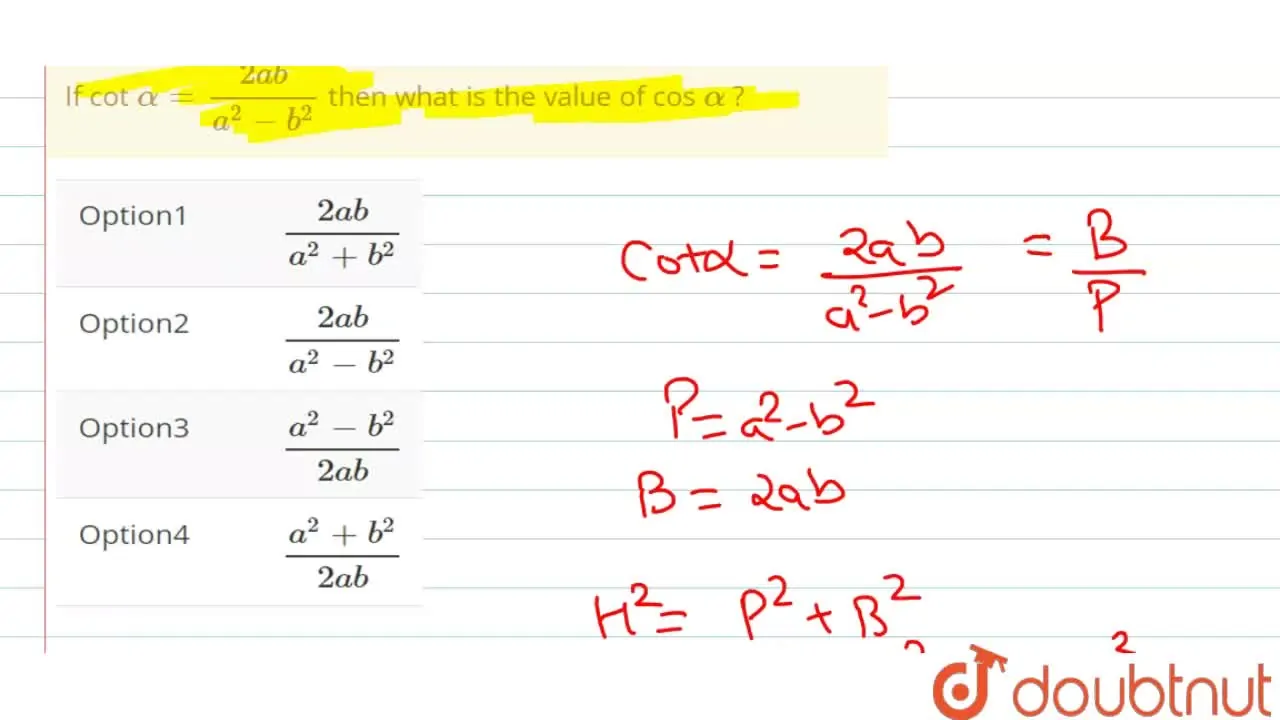 If cot α = 2ab / a² − b² then what is the value of cos α ?
Option1 2ab / a² + b²
Option2 2ab / a² − b²
Option3 a² − b² / 2ab
Option4 a² + b² / 2ab
Cotα = 2ab / a²-b² = B / P
P = a²-b²
B = 2ab
H² = P² + B²
doubtnut